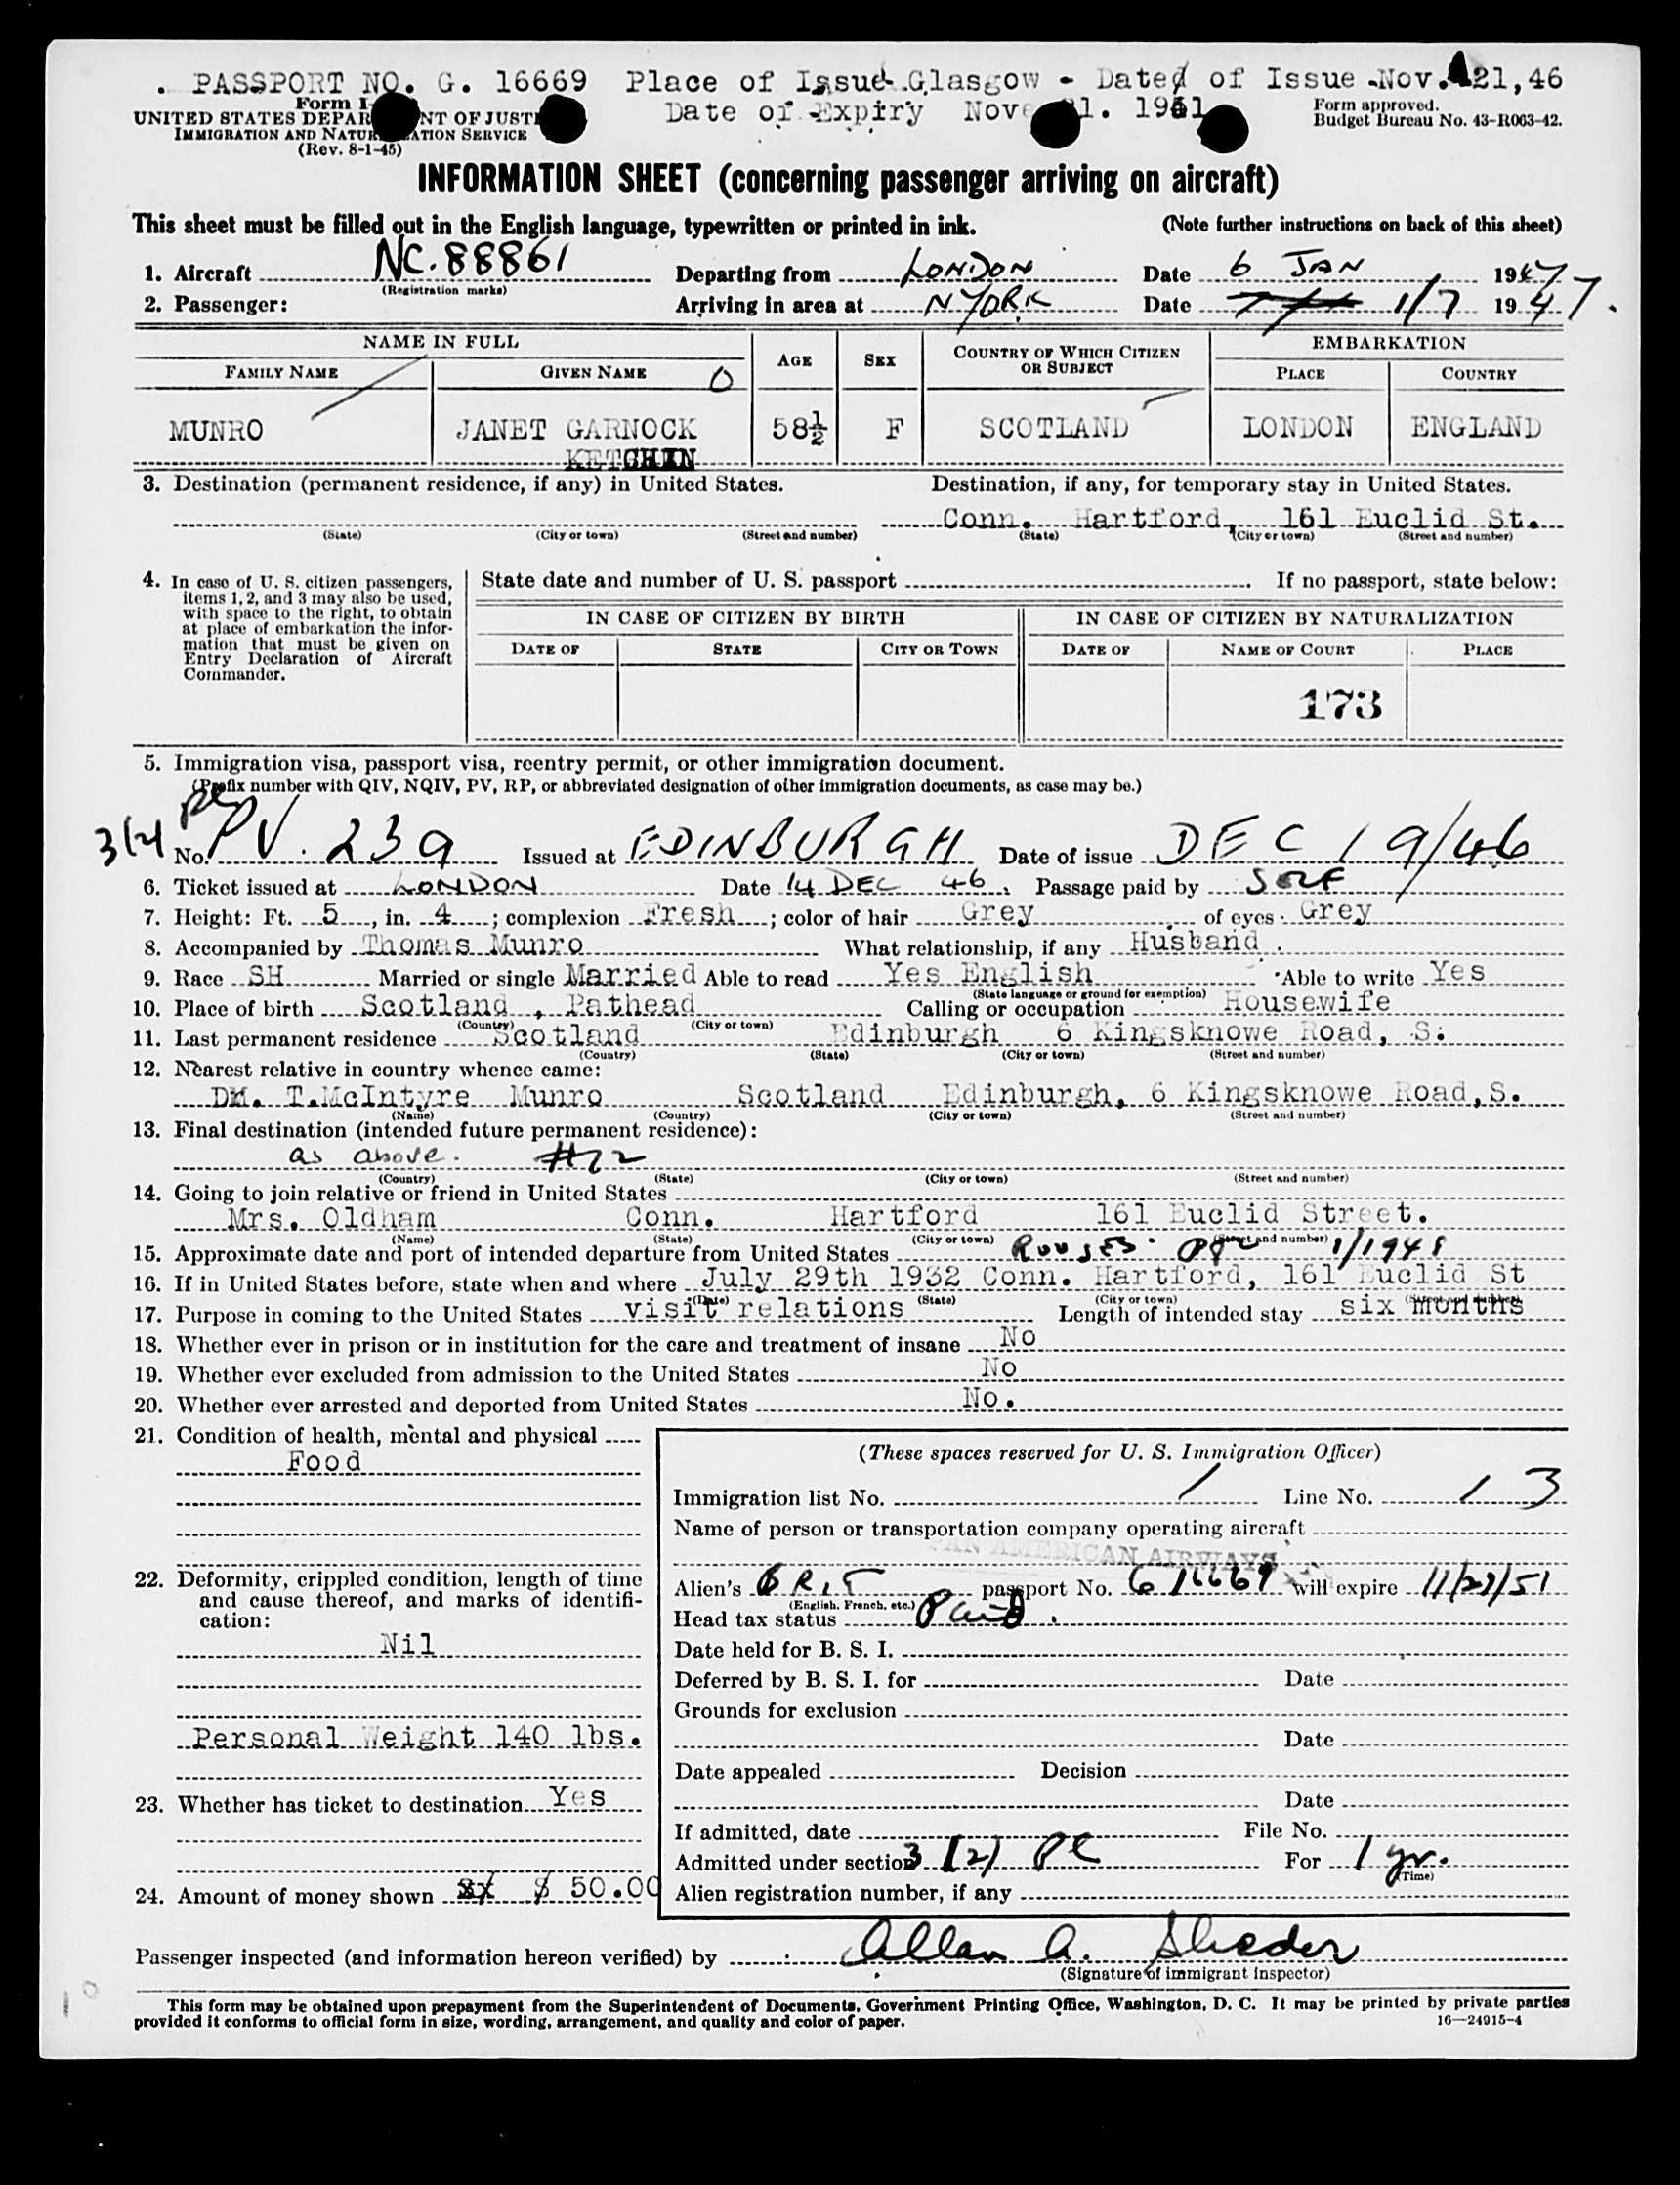 . PASSPORT NO. G. 16669 Place of Issue Glasgow - Dated of Issue -Nov. 21,46
Form I-
UNITED STATES DEPAR NT OF JUST
Date of Expiry Nov 1. 1951
Form approved.
IMMIGRATION AND NATUR ATION SERVICE
Budget Bureau No. 43-R063-42.
(Rev. 8-1-45)
INFORMATION SHEET (concerning passenger arriving on aircraft)
This sheet must be filled out in the English language, typewritten or printed in ink. (Note further instructions on back of this sheet)
1. Aircraft NC. 88861 Departing from LONDON Date 6 JAN 1947
(Registration marks)
2. Passenger: Arriving in area at N YORK Date 1/7 1947.
NAME IN FULL AGE SEX COUNTRY OF WHICH CITIZEN OR SUBJECT EMBARKATION
FAMILY NAME GIVEN NAME 0 PLACE COUNTRY
MUNRO JANET GARNOCK 58½ F SCOTLAND LONDON ENGLAND
KETCHIN
3. Destination (permanent residence, if any) in United States. Destination, if any, for temporary stay in United States.
Conn. Hartford, 161 Euclid St.
(State) (City or town) (Street and number) (State) (City or town) (Street and number)
4. In case of U. S. citizen passengers, items 1, 2, and 3 may also be used, with space to the right, to obtain at place of embarkation the information that must be given on Entry Declaration of Aircraft Commander.
State date and number of U. S. passport . If no passport, state below:
IN CASE OF CITIZEN BY BIRTH IN CASE OF CITIZEN BY NATURALIZATION
DATE OF STATE CITY OR TOWN DATE OF NAME OF COURT PLACE
173
5. Immigration visa, passport visa, reentry permit, or other immigration document.
(Prefix number with QIV, NQIV, PV, RP, or abbreviated designation of other immigration documents, as case may be.)
3(2) No. PV. 239 Issued at EDINBURGH Date of issue DEC 19/46
6. Ticket issued at LONDON Date 14 DEC 46. Passage paid by SELF
7. Height: Ft. 5, in. 4; complexion Fresh; color of hair Grey of eyes Grey
8. Accompanied by Thomas Munro What relationship, if any Husband.
9. Race SH Married or single Married Able to read Yes English Able to write Yes
(State language or ground for exemption)
10. Place of birth Scotland, Pathead Calling or occupation Housewife
(Country) (City or town)
11. Last permanent residence Scotland Edinburgh 6 Kingsknowe Road, S.
(Country) (State) (City or town) (Street and number)
12. Nearest relative in country whence came:
DR. T.McIntyre Munro Scotland Edinburgh, 6 Kingsknowe Road,S.
(Name) (Country) (City or town) (Street and number)
13. Final destination (intended future permanent residence):
as above. #12
(Country) (State) (City or town) (Street and number)
14. Going to join relative or friend in United States
Mrs. Oldham Conn. Hartford 161 Euclid Street.
(Name) (State) (City or town) (Street and number)
15. Approximate date and port of intended departure from United States 1/1948
16. If in United States before, state when and where July 29th 1932 Conn. Hartford, 161 Euclid St
(Date) (State) (City or town) (Street and number)
17. Purpose in coming to the United States visit relations Length of intended stay six months
18. Whether ever in prison or in institution for the care and treatment of insane No
19. Whether ever excluded from admission to the United States No
20. Whether ever arrested and deported from United States No.
21. Condition of health, mental and physical
Food
22. Deformity, crippled condition, length of time and cause thereof, and marks of identification:
Nil
Personal Weight 140 lbs.
23. Whether has ticket to destination Yes
24. Amount of money shown $ 50.00
(These spaces reserved for U. S. Immigration Officer)
Immigration list No. 1 Line No. 13
Name of person or transportation company operating aircraft
PAN AMERICAN AIRWAYS
Alien's BRIT passport No. G 16669 will expire 11/21/51
(English, French, etc.)
Head tax status Paid.
Date held for B. S. I.
Deferred by B. S. I. for Date
Grounds for exclusion
Date
Date appealed Decision
Date
If admitted, date File No.
Admitted under section 3 (2) PC For 1 yr.
(Time)
Alien registration number, if any
Passenger inspected (and information hereon verified) by Allan A.
(Signature of immigrant inspector)
This form may be obtained upon prepayment from the Superintendent of Documents, Government Printing Office, Washington, D. C. It may be printed by private parties
provided it conforms to official form in size, wording, arrangement, and quality and color of paper. 16—24915-4